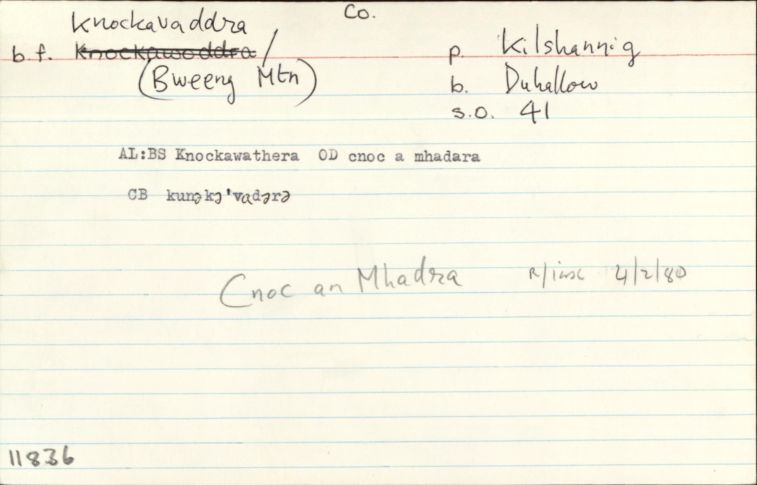 Co.
Knockavaddra
b.f. Knockawoddra /
(Bweeng Mtn)
p. Kilshannig
b. Duhallow
s.o. 41
AL:BS Knockawathera OD cnoc a mhadara
CB kunəkə'vadərə
Cnoc an Mhadra 4/2/80
11836